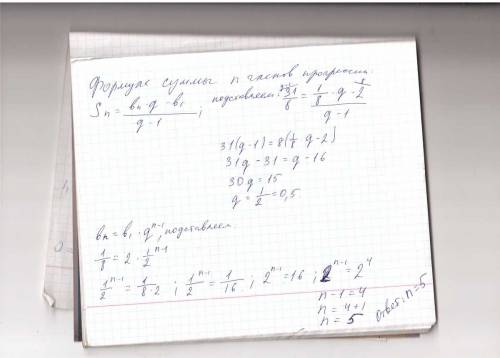 Формула суммы n членов прогрессии.
Sn = (bn·q - b1)/(q-1) ; подставляем: 31/8 = (1/8·q - 2)/(q-1)
31(q-1) = 8(1/8 q - 2)
31q - 31 = q - 16
30q = 15
q = 1/2 = 0,5
bn = b1·q^(n-1), подставляем.
1/8 = 2·1/2^(n-1)
1/2^(n-1) = 1/(8·2) ; 1/2^(n-1) = 1/16 ; 2^(n-1) = 16 ; 2^(n-1) = 2^4
n-1 = 4
n = 4+1
n = 5
Ответ: n=5